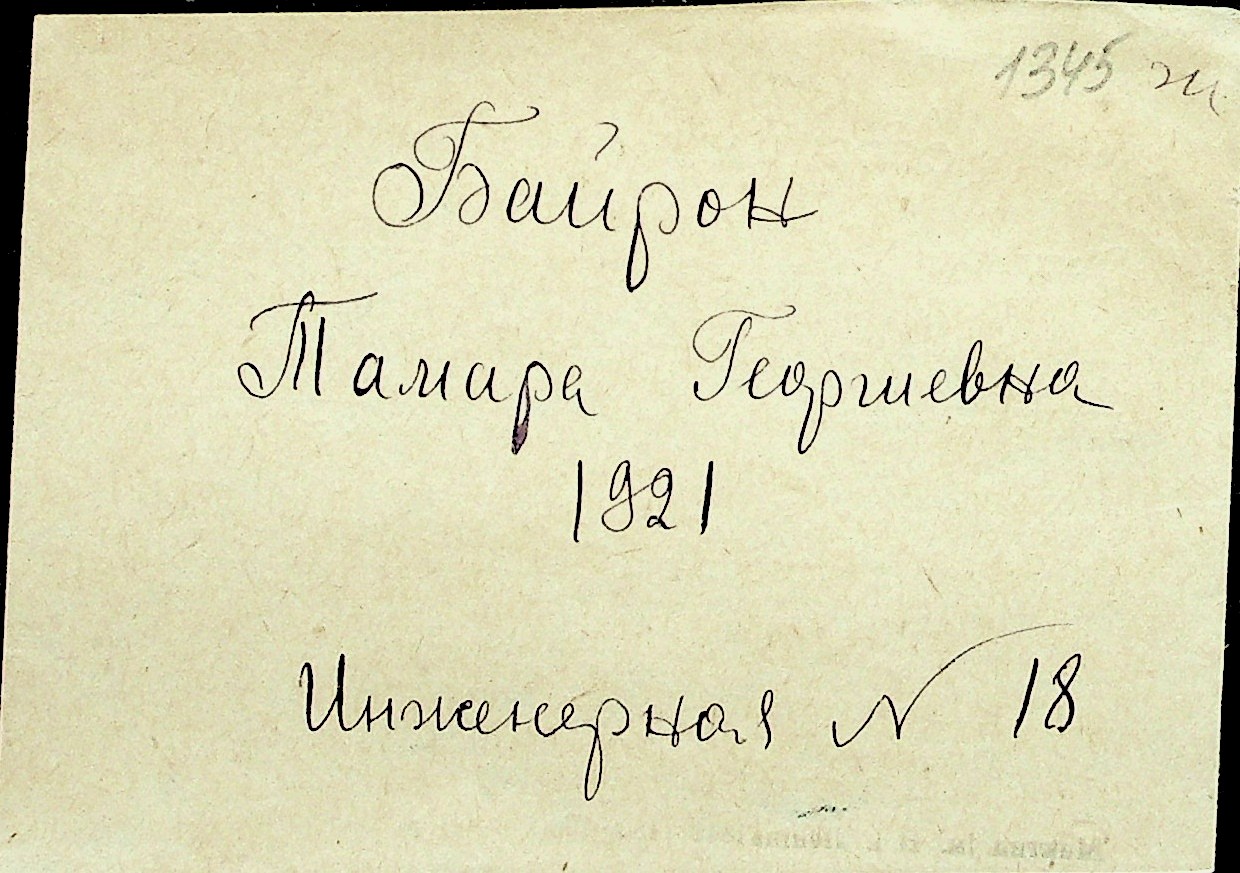 1345
Байрон
Тамара Георгиевна
1921
Инженерная N 18